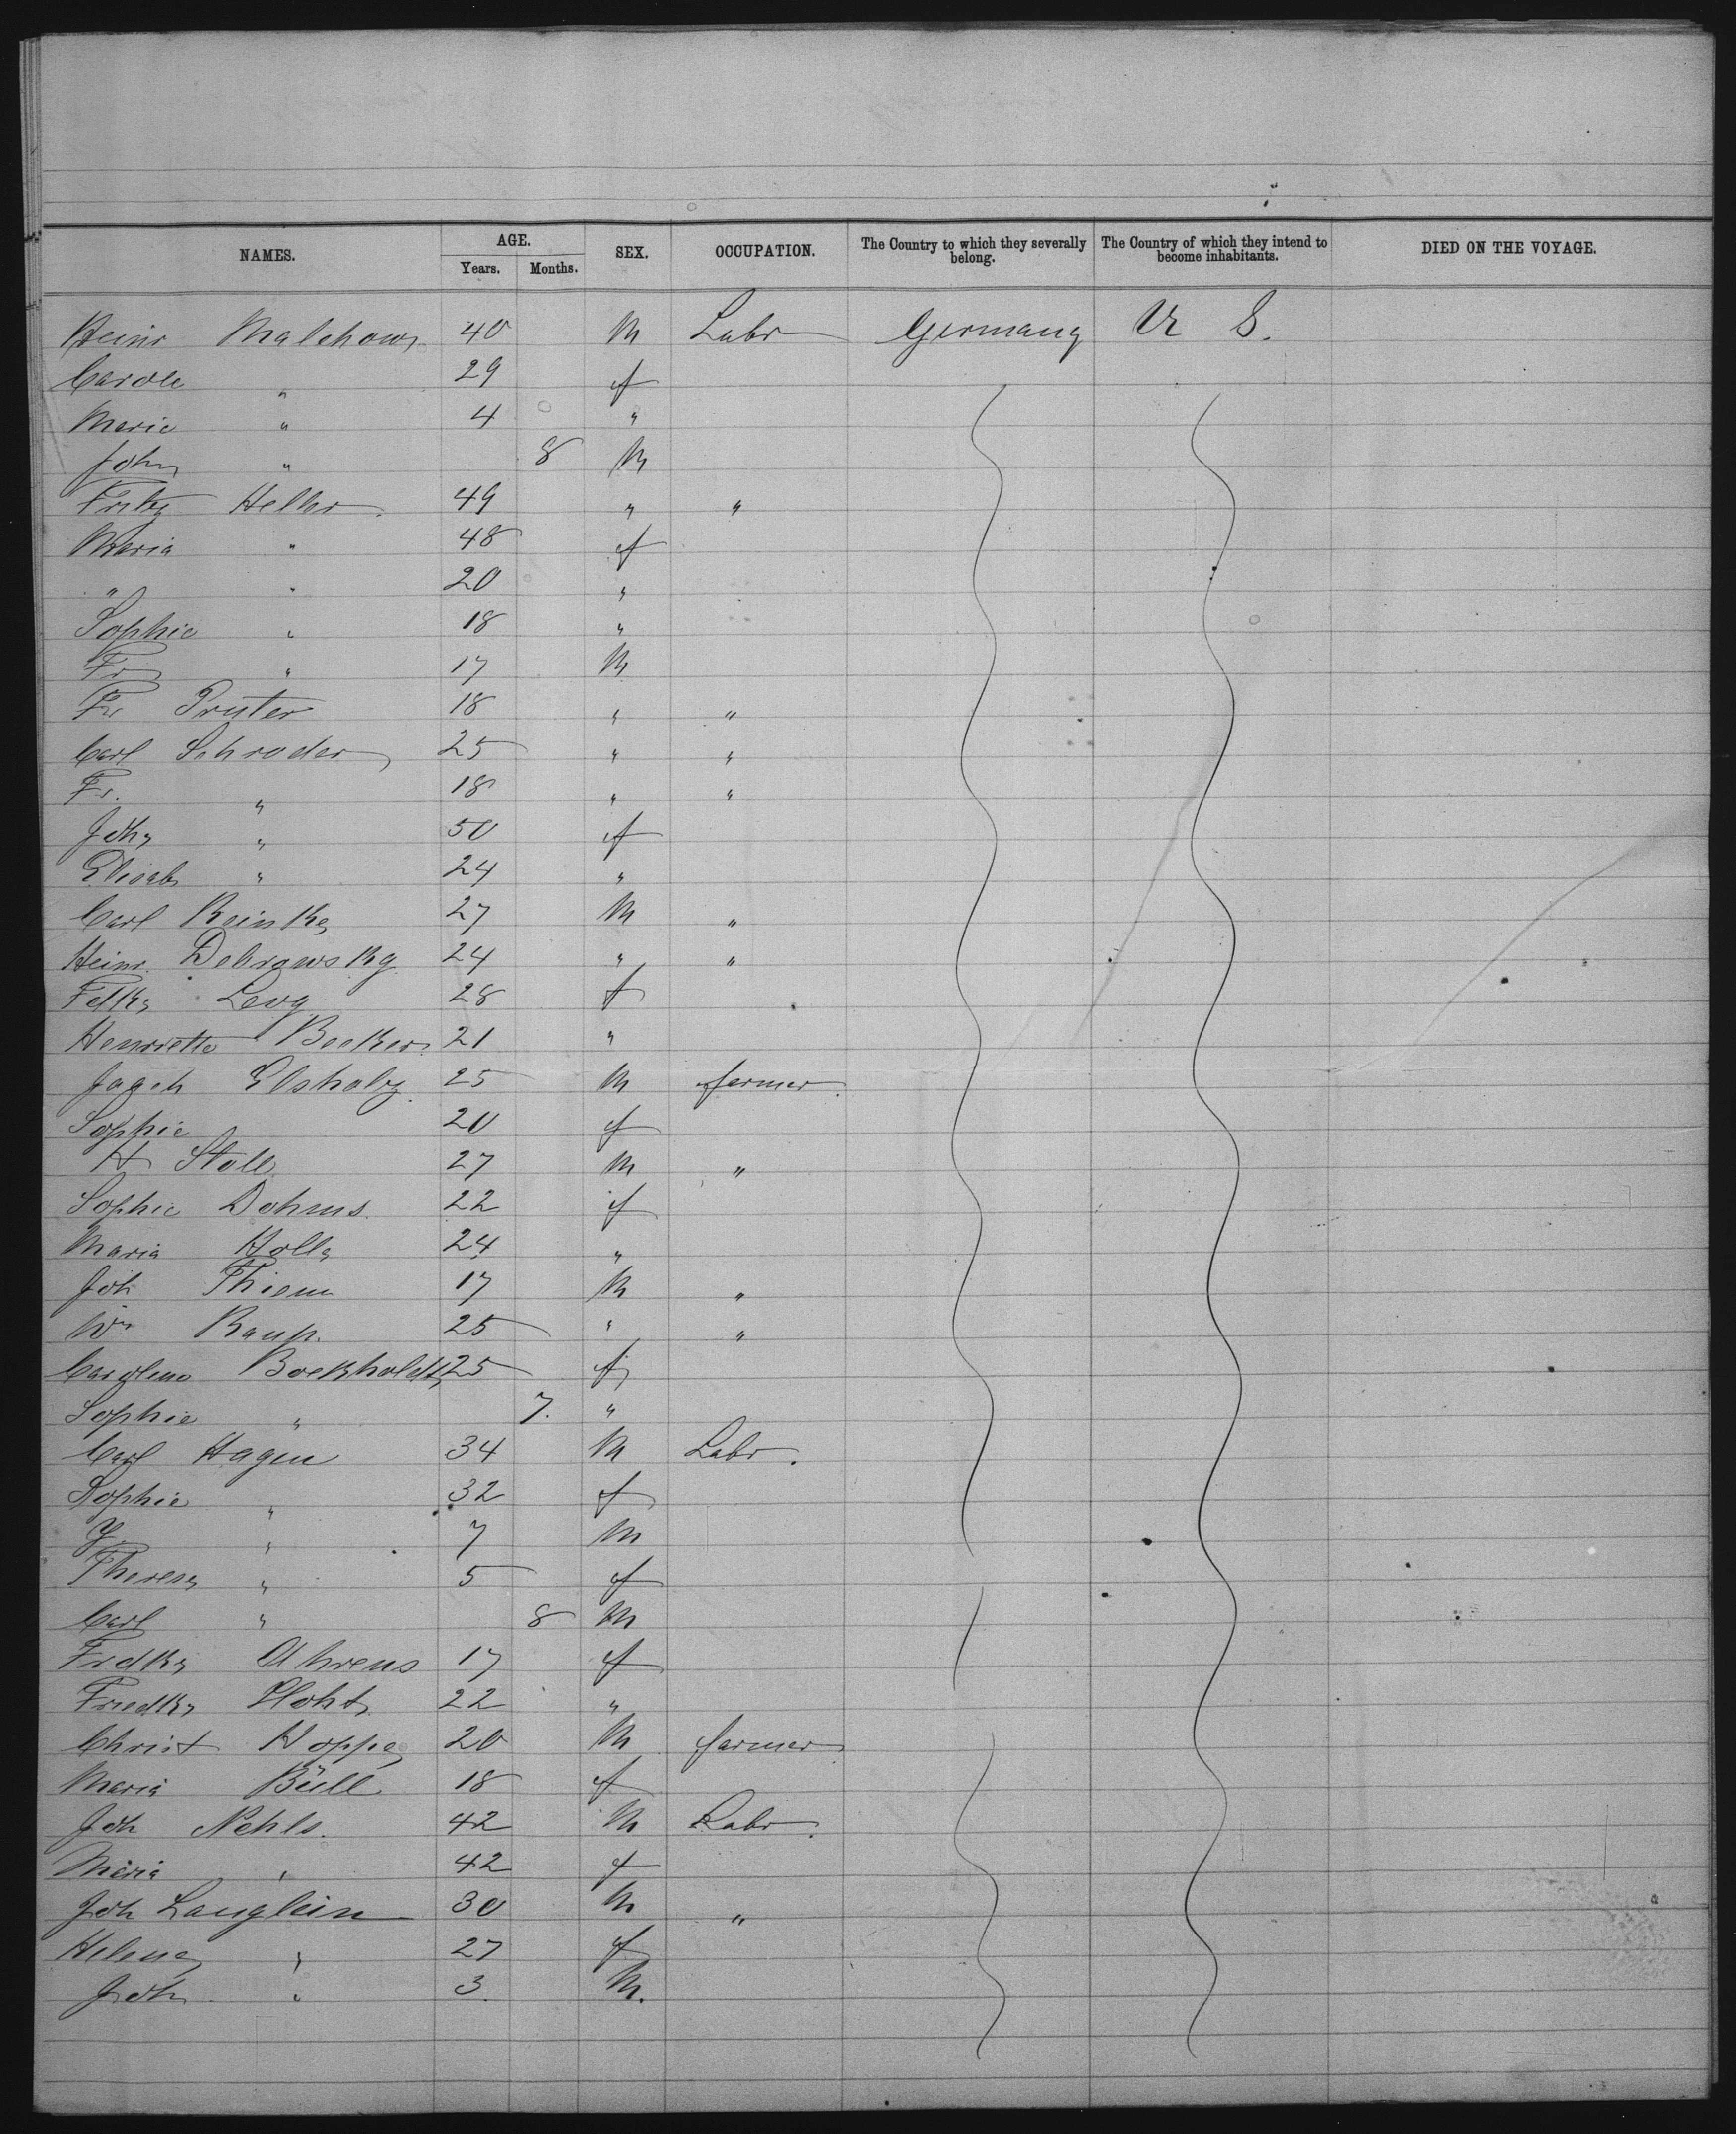 NAMES. AGE. SEX. OCCUPATION. The Country to which they severally belong. The Country of which they intend to become inhabitants. DIED ON THE VOYAGE.
Years. Months.
Heinr Malchow 40 M Labr Germany U S.
Carole " 29 f
Marie " 4 "
John " 8 M
Fritz Heller 49 " "
Maria " 48 f
" " 20 "
Sophie " 18 "
Fr " 17 M
Fr Pruter 18 " "
Carl Schroder 25 " "
Fr. " 18 " "
Joh " 50 f
Elisab " 24 "
Carl Reinke 27 M "
Heinr. Debrowsky 24 " "
Levy 28 f
Henriette Becker 21 "
Elsholz 25 M farmer
Sophie 20 f
H Stoll 27 M "
Sophie Dohms 22 f
Maria Holla 24 "
Joh Thiem 17 M "
Wm Raup. 25 " "
Carolena Boekholdt 25 f
Sophie " 7. "
Carl Hagen 34 M Labr.
Sophie " 32 f
" 7 M
Theresa " 5 f
Carl " 8 M
Fredka Ahrens 17 f
Friedka 22 "
Christ Hoppe 20 M farmer
Maria Büll 18 f
Joh Nehls. 42 M Labr.
Maria " 42 f
Joh Lauglein 30 M "
Helena " 27 f
Joh " 3. M.